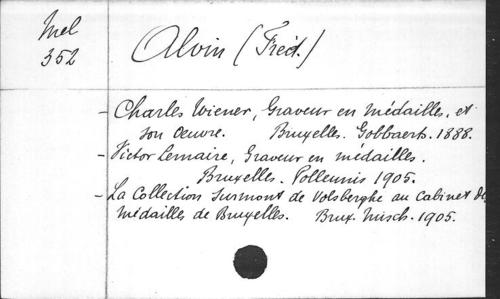 Mel
352
Alvin (Fréd.)
- Charles Wiener, Graveur en Médailles, et
son Oeuvre. Bruxelles. Gobbaerts. 1888.
- Victor Lemaire, Graveur en médailles.
Bruxelles. Polleunis 1905.
- La Collection Surmont de Volsberghe au Cabinet de
Médailles de Bruxelles. Brux. 1905.